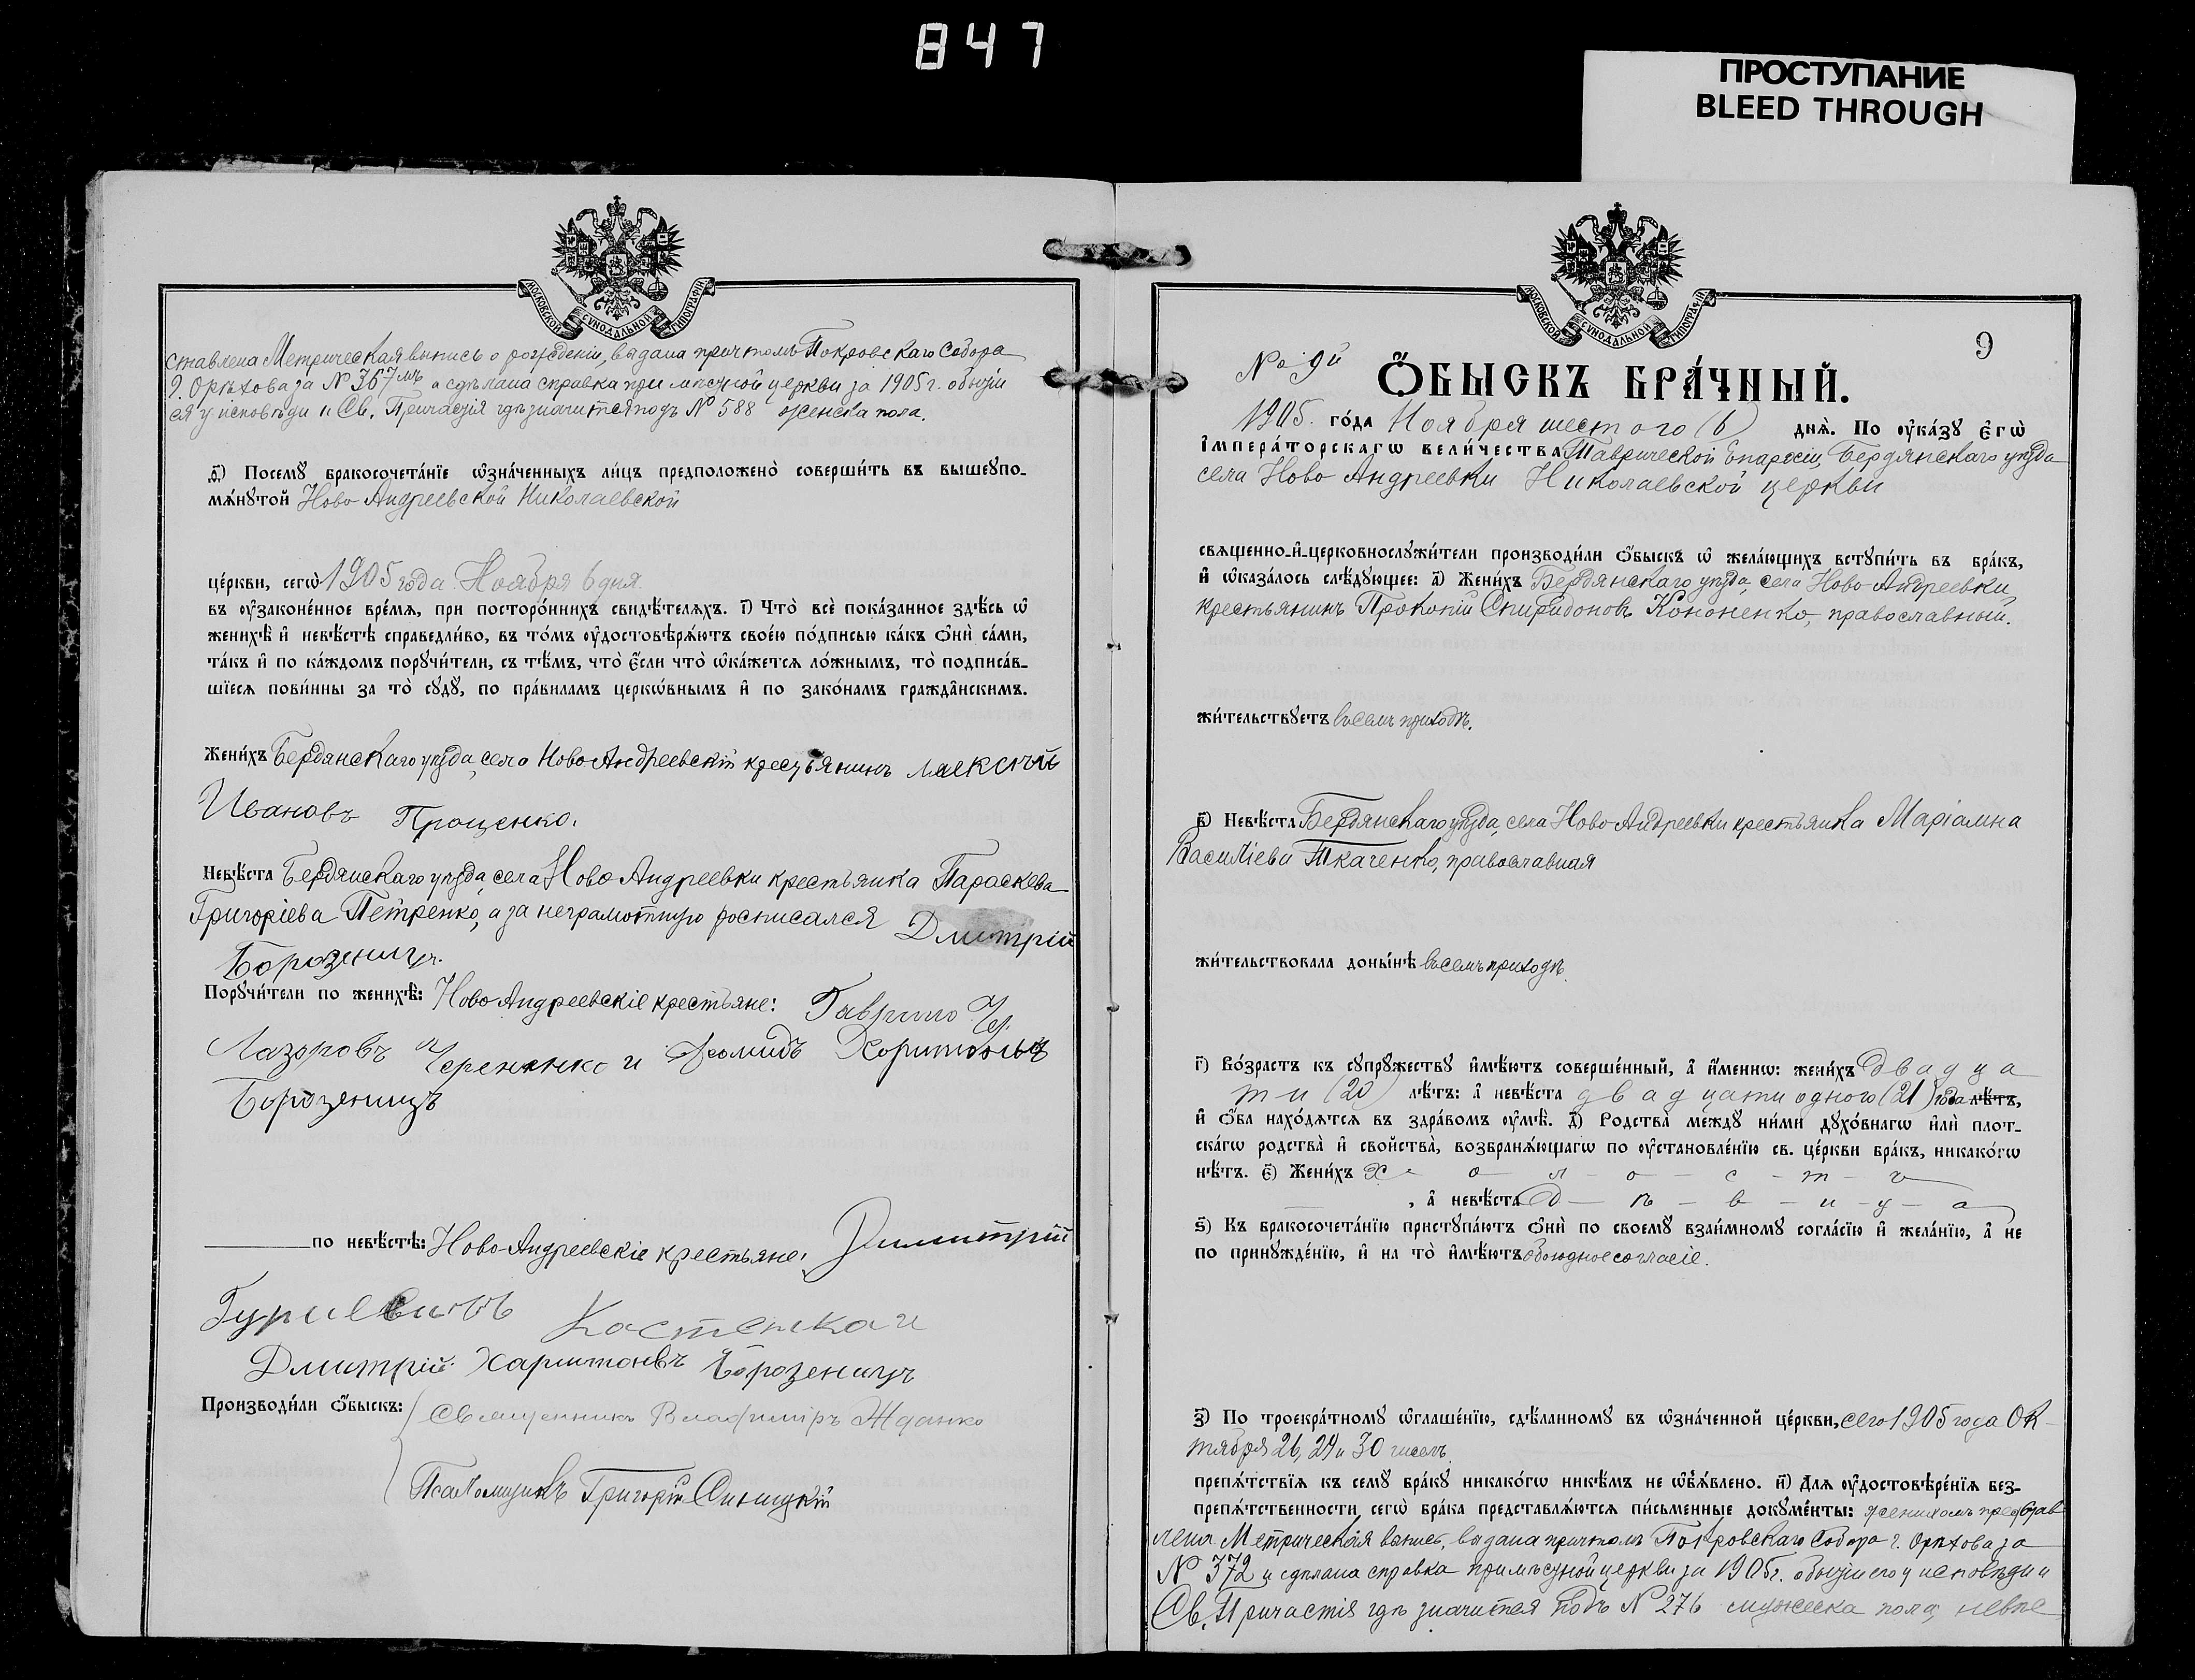 847
ПРОСТУПАНИЕ
BLEED THROUGH
МОСКОВСКОЙ СѴНОДАЛЬНОЙ ТИПОГРАФІИ
ставлена Метрическая выпись о рожденіи, выдана причтомъ Покровскаго Собора
г. Орѣхова за № 367мъ и сдѣлана справка при мѣстной церкви за 1905 г. о бытіи
ея у исповѣди и Св. Причастія гдѣ значится подъ № 588 женска пола.
ѳ҃) Посемꙋ бракосочета́нїе ѡ҆зна́ченныхъ ли́цъ предположено̀ соверши́ть въ вышеꙋпо-
мѧ́нꙋтой Ново Андреевской Николаевской
це́ркви, сегѡ̀ 1905 года Ноября 6 дня.
въ ᲂу҆зако́не́нное вре́мѧ, при посторо́ннихъ свидѣ́телѧхъ. і҃) Что̀ всѐ пока́занное здѣ́сь ѡ҆
женихѣ̀ и҆ невѣ́стѣ справедли́во, въ то́мъ ᲂу҆достовѣрѧ́ютъ свое́ю по́дписью ка́къ ѻ҆нѝ са́ми,
та́къ и҆ по ка́ждомъ порꙋчи́тели, съ тѣ́мъ, что̀ є҆́сли что̀ ѡ҆ка́жетсѧ ло́жнымъ, то̀ подписа́в-
шїесѧ пови́нны за то̀ сꙋдꙋ̀, по пра́виламъ церкѡ́внымъ и҆ по зако́намъ гражда̑нскимъ.
Жени́хъ Бердянскаго уѣзда, села Ново Андреевскій крестьянинъ Алексѣй
Ивановъ Проценко.
Невѣ́ста Бердянскаго уѣзда, села Ново Андреевки крестьянка Параскева
Григоріева Петренко, а за неграмотную росписался Дмитрій
Борозеницъ.
Порꙋчи́тели по женихѣ̀: Ново Андреевскіе крестьяне: Гаврило Че.
Лазоровъ Черененко и Фомидъ Хоритоновъ
Борозеницъ
по невѣ́стѣ: Ново Андреевскіе крестьяне: Димитрій
Костенко и
Дмитрій Харитоновъ Борозеницъ
Производи́ли ѻ҆́быскъ: Священникъ Владиміръ Жданко
Псаломщикъ Григорій Синицкій
9
МОСКОВСКОЙ СѴНОДАЛЬНОЙ ТИПОГРАФІИ
№ 9й
Ѻ҆́БЫСКЪ БРА́ЧНЫЙ.
1905. го́да Ноября шестого (6) днѧ̀. По ᲂу҆ка́зꙋ є҆гѡ̀
і҆мпера́торскагѡ вели́чества Таврической Епархіи, Бердянскаго уѣзда
села Ново Андреевки Николаевской церкви
свѧщенно-и҆-церковнослꙋжи́тели производи́ли ѻ҆́быскъ ѡ҆ жела́ющихъ встꙋпи́ть въ бра́къ,
и҆ ѡ҆каза́лось слѣ́дꙋющее: а҃) Жени́хъ Бердянскаго уѣзда, села Ново Андреевки,
крестьянинъ Прокопій Спиридоновъ Кононенко, православный.
жи́тельствꙋетъ въ семъ приходѣ.
в҃) Невѣ́ста Бердянскаго уѣзда, села Ново Андреевки крестьянка Маріамна
Василіева Ткаченко, православная
жи́тельствовала доны́нѣ въ семъ приходѣ.
г҃) Во́зрастъ къ сꙋпрꙋ́жествꙋ и҆мѣ́ютъ соверше́нный, а҆ и҆́меннѡ: жени́хъ двадца
ти (20) лѣ́тъ: а҆ невѣ́ста двадцати одного (21) года лѣ́тъ,
и҆ ѻ҆́ба нахо́дѧтсѧ въ здра́вомъ ᲂу҆мѣ̀. д҃) Родства̀ ме́ждꙋ ни́ми дꙋхо́внагѡ и҆лѝ плот-
ска́гѡ родства̀ и҆ свойства̀, возбранѧ́ющагѡ по ᲂу҆становле́нїю св. це́ркви бра́къ, никако́гѡ
нѣ́тъ. є҃) Жени́хъ х - о - л - о - с - т - ъ
, а҆ невѣ́ста д - ѣ - в - и - ц - а
ѕ҃) Къ бракосочета́нїю пристꙋпа́ютъ ѻ҆нѝ по своемꙋ̀ взаи́мномꙋ согла́сїю и҆ жела́нїю, а҆ не
по принꙋжде́нїю, и҆ на то̀ и҆мѣ́ютъ обоюдное согласіе.
з҃) По троекра́тномꙋ ѡ҆глаше́нїю, сдѣ́ланномꙋ въ ѡ҆зна́ченной це́ркви, сего 1905 года Ок-
тября 26, 29 и 30 чиселъ
препѧ́тствїѧ къ семꙋ̀ бра́кꙋ никако́гѡ никѣ́мъ не ѡ҆бъѧ́влено. и҃) Длѧ ᲂу҆достовѣре́нїѧ без-
препѧ́тственности сегѡ̀ бра́ка представлѧ́ютсѧ пи́сьменные докꙋме́нты: женихомъ представ
лена Метрическая выпись, выдана причтомъ Покровскаго Собора г. Орѣхова за
№ 372 и сдѣлана справка при мѣстной церкви за 1905 г. о бытіи его у исповѣди и
Св. Причастія гдѣ значится подъ № 276 мужеска пола; невѣ